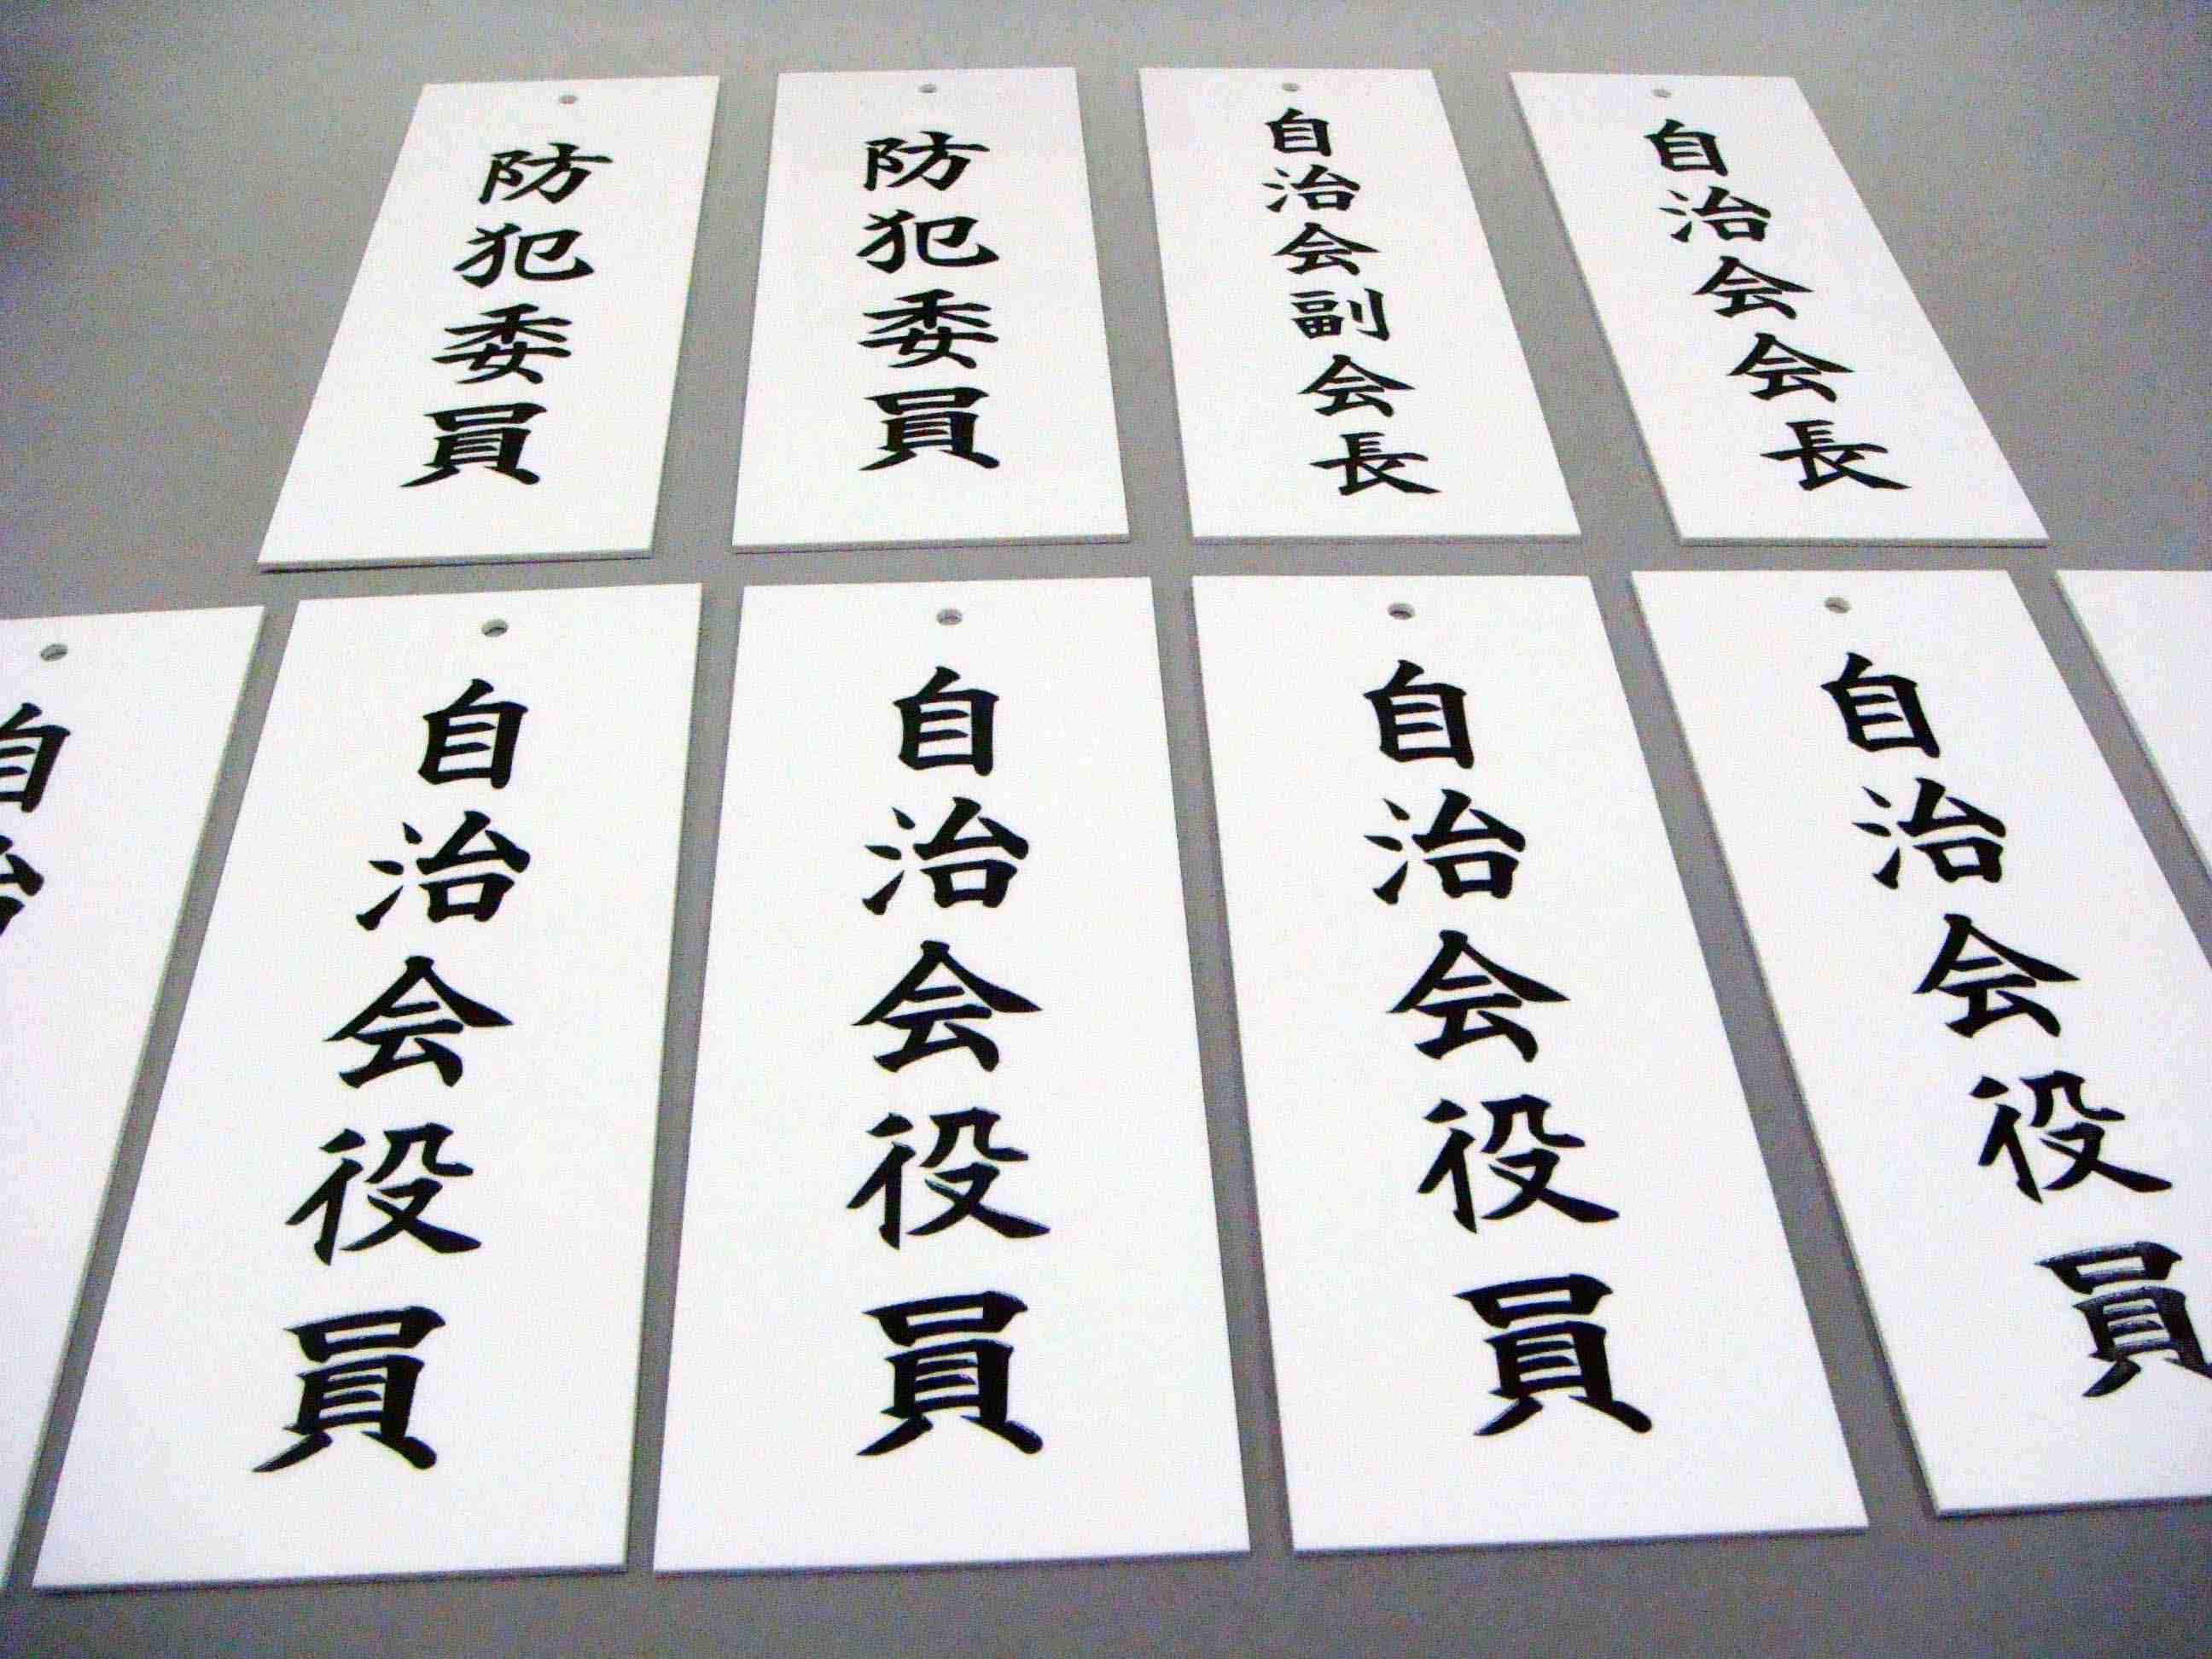 防犯委員
防犯委員
自治会副会長
自治会会長
自治
自治会役員
自治会役員
自治会役員
自治会役員